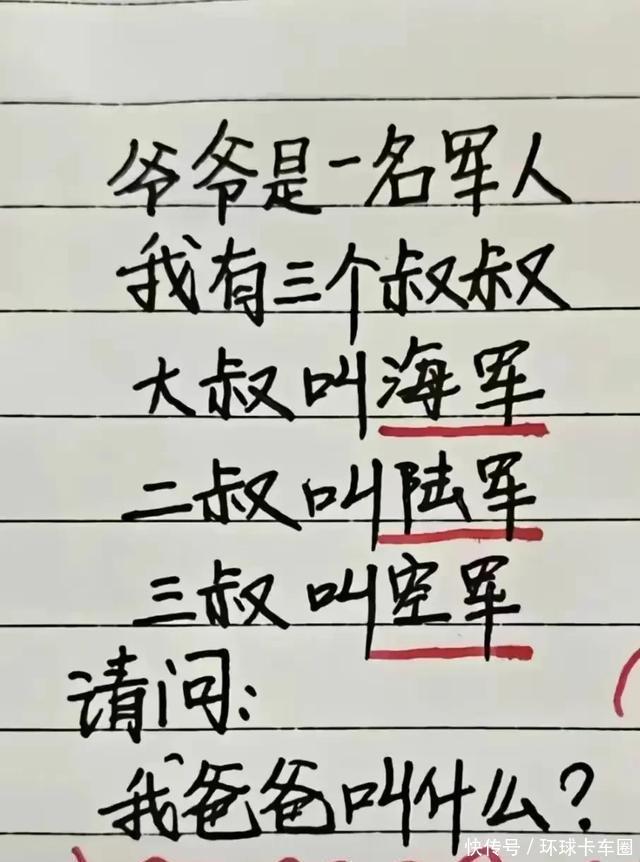 爷爷是一名军人
我有三个叔叔
大叔叫海军
二叔叫陆军
三叔叫空军
请问:
我爸爸叫什么?
快传号/环球卡车圈